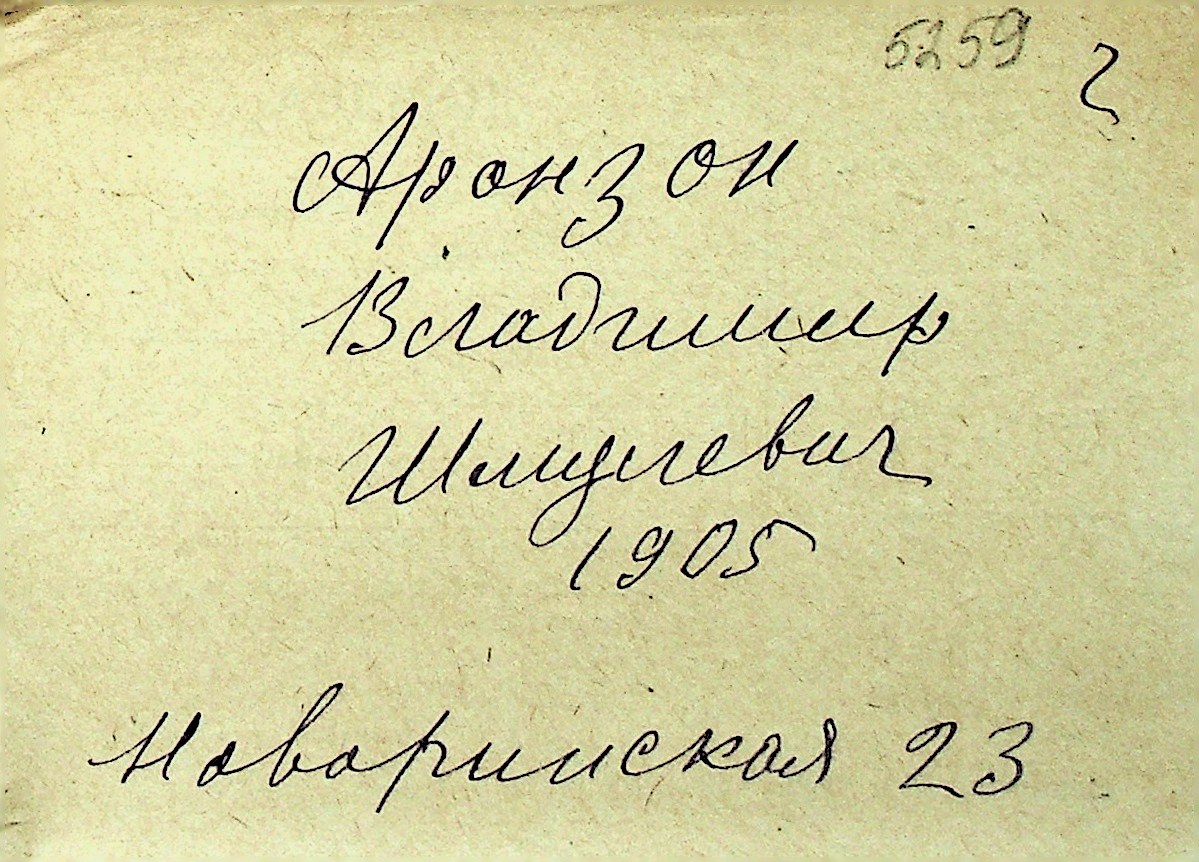 5259
Аронзон
Владимир
Шмулевич
1905
Новоринская 23